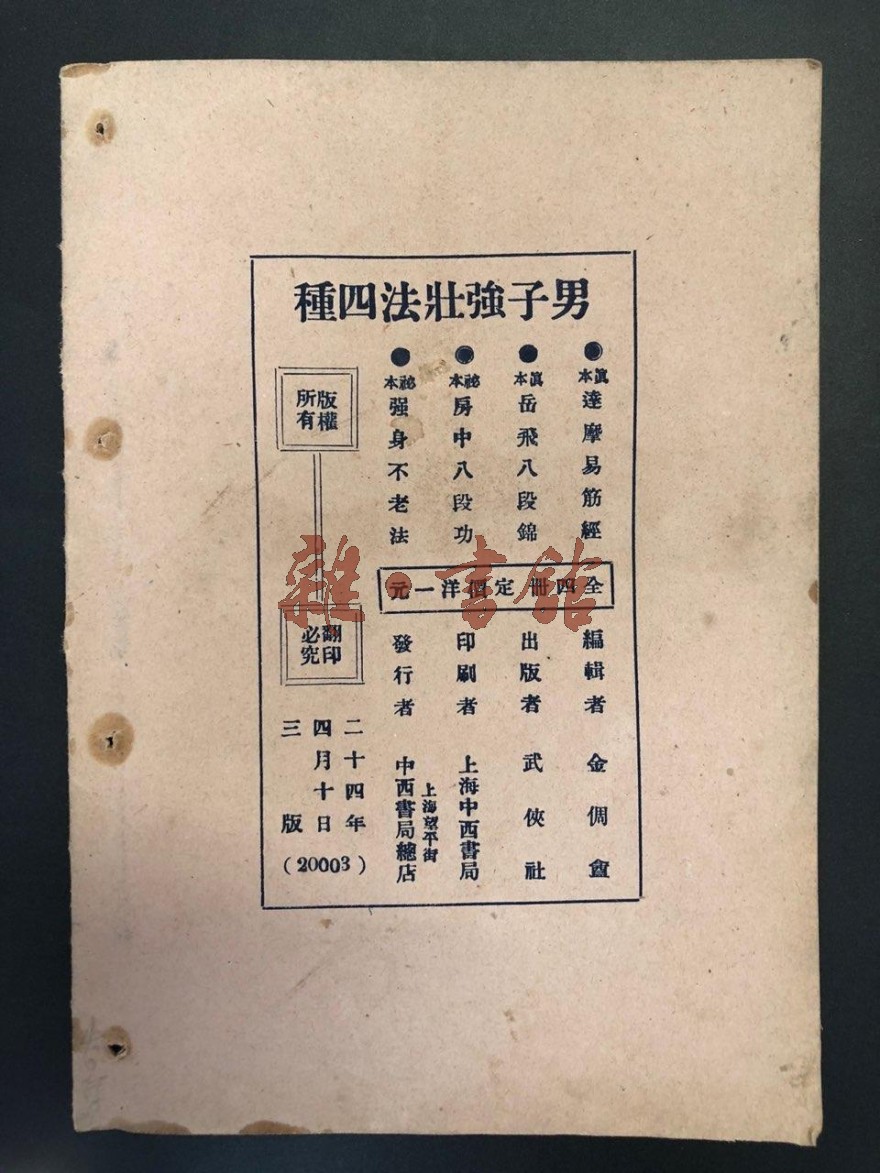 男子強壯法四種
真本達摩易筋經
真本岳飛八段錦
祕本房中八段功
祕本强身不老法
版權所有
翻印必究
全四冊定價洋一元
編輯者 金倜盦
出版者 武俠社
印刷者 上海中西書局
發行者 上海望平街 中西書局總店
二十四年
四月十日
三版
(20003)
雜·書館